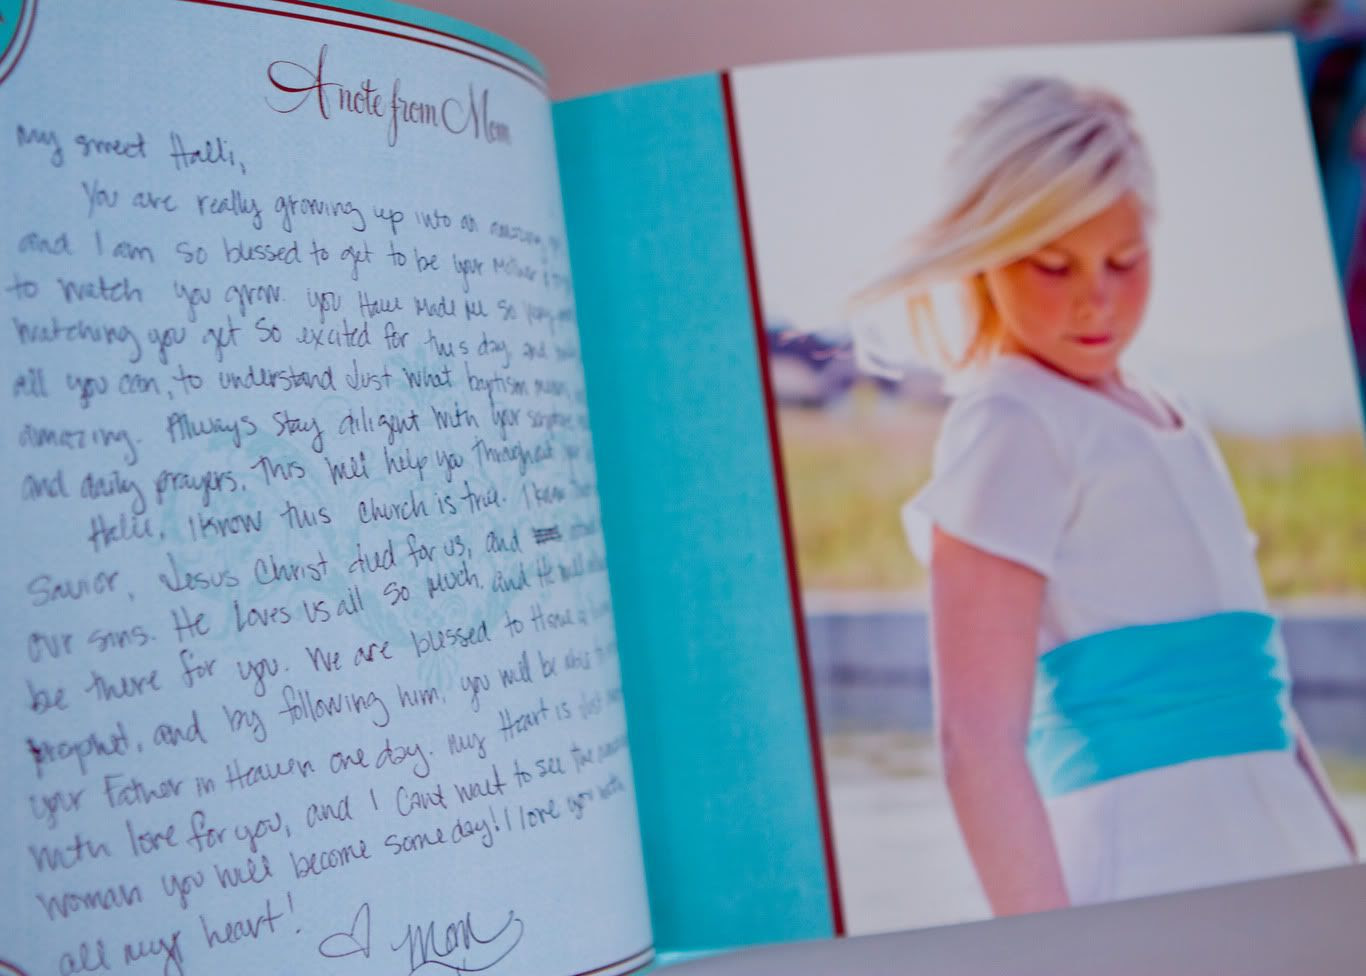 A note from Mom
My sweet Halli,
You are really growing up into an amazing
and I am so blessed to get to be your Mother
to watch you grow. You Have Made Me so
watching you get so excited for this day, and
all you can, to understand Just what baptism
amazing. Always stay diligent with your scripture
and daily prayers. This will help you Throughout
Halli, I know this church is true. I know
Savior, Jesus Christ died for us, and
our sins. He loves us all so much, and He will
be there for you. We are blessed to Have
prophet, and by following him, you will be able
your Father in Heaven one day. My Heart is Just
with love for you, and I can't wait to see the
woman you will become someday! I love you with
all my heart!
♡ Mom